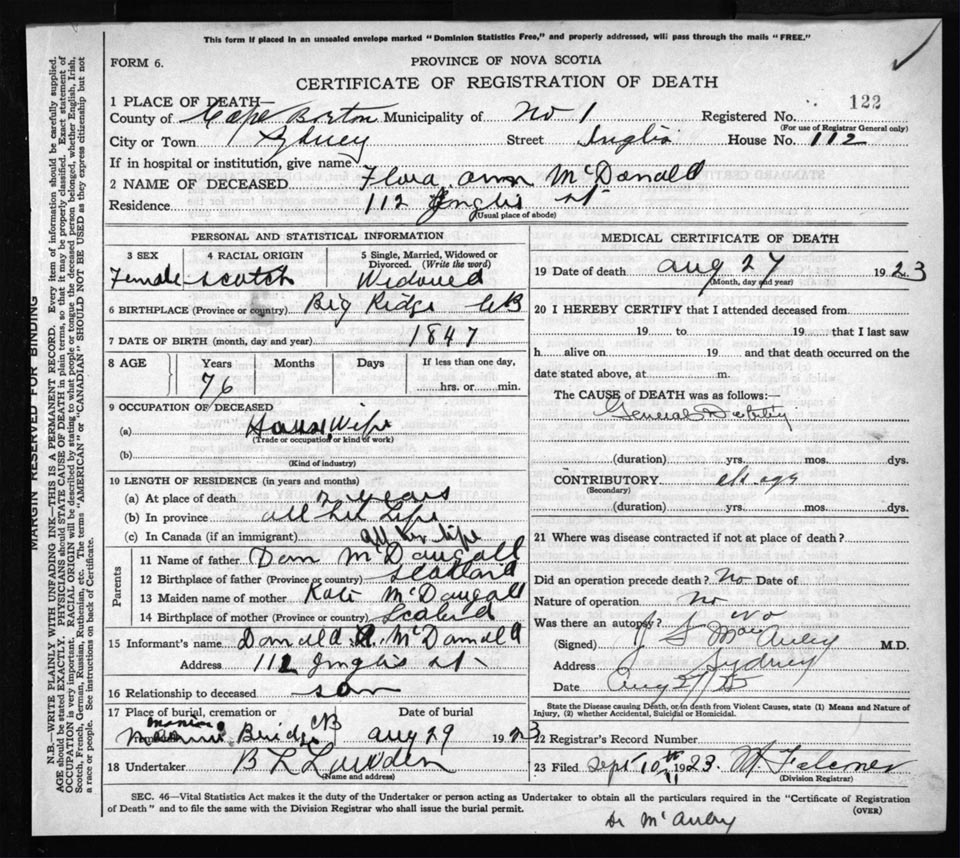 This form if placed in an unsealed envelope marked "Dominion Statistics Free," and properly addressed, will pass through the mails "FREE."
FORM 6.
PROVINCE OF NOVA SCOTIA
CERTIFICATE OF REGISTRATION OF DEATH
122
1 PLACE OF DEATH—
County of Cape Breton Municipality of No 1 Registered No.
(For use of Registrar General only)
City or Town Sydney Street Inglis House No. 112
If in hospital or institution, give name
2 NAME OF DECEASED Flora Ann McDonald
Residence 112 Inglis St
(Usual place of abode)
PERSONAL AND STATISTICAL INFORMATION
3 SEX
Female
4 RACIAL ORIGIN
Scotch
5 Single, Married, Widowed or Divorced. (Write the word)
Widowed
6 BIRTHPLACE (Province or country) Big Ridge CB
7 DATE OF BIRTH (month, day and year) 1847
8 AGE Years Months Days If less than one day,
76 hrs. or min.
9 OCCUPATION OF DECEASED
(a) House Wife
(Trade or occupation or kind of work)
(b)
(Kind of industry)
10 LENGTH OF RESIDENCE (in years and months)
(a) At place of death years
(b) In province all her life
(c) In Canada (if an immigrant) all her life
Parents
11 Name of father Dan McDaugall
12 Birthplace of father (Province or country) Scotland
13 Maiden name of mother Kate McDaugall
14 Birthplace of mother (Province or country)
15 Informant's name Donald A. McDonald
Address 112 Inglis st
16 Relationship to deceased son
17 Place of burial, cremation or
Date of burial
Bridge CB Aug 29 1923
18 Undertaker B L
(Name and address)
MEDICAL CERTIFICATE OF DEATH
19 Date of death Aug 27 1923
(Month, day and year)
20 I HEREBY CERTIFY that I attended deceased from
19 to 19 that I last saw
h alive on 19 and that death occurred on the
date stated above, at m.
The CAUSE of DEATH was as follows:—
General Debility
(duration) yrs. mos. dys.
CONTRIBUTORY
(Secondary)
(duration) yrs. mos. dys.
21 Where was disease contracted if not at place of death?
Did an operation precede death? No Date of
Nature of operation No
Was there an autopsy? No
(Signed) J. S. M.D.
Address Sydney
Date Aug 27
State the Disease causing Death, or in death from Violent Causes, state (1) Means and Nature of Injury, (2) whether Accidental, Suicidal or Homicidal.
22 Registrar's Record Number
23 Filed Sept 10th 1923
(Division Registrar)
SEC. 46—Vital Statistics Act makes it the duty of the Undertaker or person acting as Undertaker to obtain all the particulars required in the "Certificate of Registration
of Death" and to file the same with the Division Registrar who shall issue the burial permit.
(OVER)
Dr McAuley
MARGIN RESERVED FOR BINDING
N.B.—WRITE PLAINLY WITH UNFADING INK—THIS IS A PERMANENT RECORD. Every item of information should be carefully supplied.
AGE should be stated EXACTLY. PHYSICIANS should STATE CAUSE OF DEATH in plain terms, so that it may be properly classified. Exact statement of
OCCUPATION is very important. RACIAL ORIGIN will be described by stating to what people or tongue the deceased person belonged, whether English, Irish,
Scotch, French, German, Russian, Ruthenian, etc. The terms "AMERICAN" or "CANADIAN" SHOULD NOT BE USED as they express citizenship but not
a race or people. See instructions on back of Certificate.